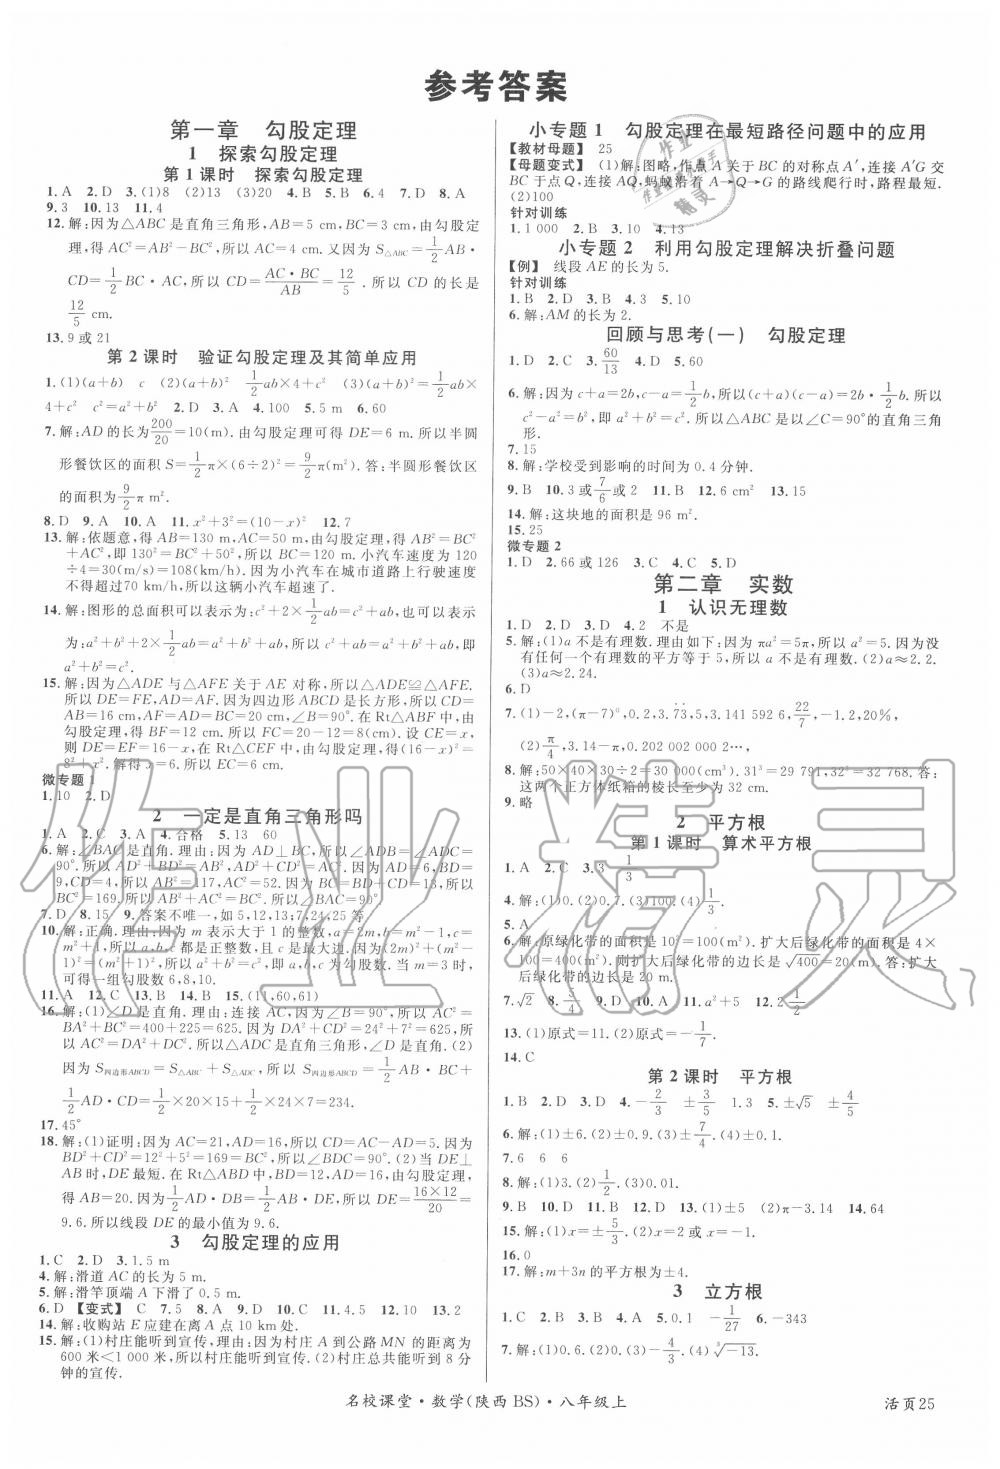 参考答案
第一章 勾股定理
1 探索勾股定理
第1课时 探索勾股定理
1.A 2.D 3.(1)8 (2)13 (3)20 4.B 5.B 6.4 7.D 8.A
9.3 10.13 11.4
12.解:因为△ABC是直角三角形,AB=5 cm,BC=3 cm,由勾股定
理,得AC²=AB²-BC²,所以AC=4 cm.又因为S△ABC=1/2AB·
CD=1/2BC·AC,所以CD=AC·BC/AB=12/5.所以CD的长是
12/5 cm.
13.9或21
第2课时 验证勾股定理及其简单应用
1.(1)(a+b) c (2)(a+b)² 1/2ab×4+c² (3)(a+b)²=1/2ab×
4+c² c²=a²+b² 2.D 3.A 4.100 5.5 m 6.60
7.解:AD的长为200/20=10(m).由勾股定理可得DE=6 m.所以半圆
形餐饮区的面积S=1/2π×(6÷2)²=9/2π(m²).答:半圆形餐饮区
的面积为9/2π m².
8.D 9.A 10.A 11.x²+3²=(10-x)² 12.7
13.解:依题意,得AB=130 m,AC=50 m,由勾股定理,得AB²=BC²
+AC²,即130²=BC²+50²,所以BC=120 m.小汽车速度为120
÷4=30(m/s)=108(km/h).因为小汽车在城市道路上行驶速度
不得超过70 km/h,所以这辆小汽车超速了.
14.解:图形的总面积可以表示为:c²+2×1/2ab=c²+ab,也可以表示
为:a²+b²+2×1/2ab=a²+b²+ab,所以c²+ab=a²+b²+ab,即
a²+b²=c².
15.解:因为△ADE与△AFE关于AE对称,所以△ADE≌△AFE.
所以DE=FE,AD=AF.因为四边形ABCD是长方形,所以CD=
AB=16 cm,AF=AD=BC=20 cm,∠B=90°.在Rt△ABF中,由
勾股定理,得BF=12 cm.所以FC=20-12=8(cm).设CE=x,
则DE=EF=16-x,在Rt△CEF中,由勾股定理,得(16-x)²=
8²+x².解得x=6.所以EC=6 cm.
微专题1
1.10 2.D
2 一定是直角三角形吗
1.A 2.C 3.A 4.合格 5.13 60
6.解:∠BAC是直角.理由:因为AD⊥BC,所以∠ADB=∠ADC=
90°.所以AB²=AD²+BD²,AC²=AD²+CD².因为AD=6,BD=
9,CD=4,所以AB²=117,AC²=52.因为BC=BD+CD=13,所以
BC²=169.所以AB²+AC²=BC².所以∠BAC=90°.
7.D 8.15 9.答案不唯一,如5,12,13;7,24,25等
10.解:正确.理由:因为m表示大于1的整数,a=2m,b=m²-1,c=
m²+1,所以a,b,c都是正整数,且c是最大边.因为(2m)²+(m²-
1)²=(m²+1)²,所以a²+b²=c²,即a,b,c为勾股数.当m=3时,
可得一组勾股数6,8,10.
11.A 12.C 13.B 14.B 15.(11,60,61)
16.解:(1)∠D是直角.理由:连接AC.因为∠B=90°,所以AC²=
BA²+BC²=400+225=625.因为DA²+CD²=24²+7²=625,所
以AC²=DA²+DC².所以△ADC是直角三角形,∠D是直角.(2)
因为S四边形ABCD=S△ABC+S△ADC,所以S四边形ABCD=1/2AB·BC+
1/2AD·CD=1/2×20×15+1/2×24×7=234.
17.45°
18.解:(1)证明:因为AC=21,AD=16,所以CD=AC-AD=5.因为
BD²+CD²=12²+5²=169=BC²,所以∠BDC=90°.(2)当DE⊥
AB时,DE最短.在Rt△ABD中,BD=12,AD=16,由勾股定理,
得AB=20.因为1/2AD·DB=1/2AB·DE,所以DE=16×12/20=
9.6.所以线段DE的最小值为9.6.
3 勾股定理的应用
1.C 2.D 3.1.5 m
4.解:滑道AC的长为5 m.
5.解:滑竿顶端A下滑了0.5 m.
6.D 【变式】 C 7.5 8.A 9.D 10.C 11.4.5 12.10 13.2
14.解:收购站E应建在离A点10 km处.
15.解:(1)村庄能听到宣传.理由:因为村庄A到公路MN的距离为
600米<1 000米,所以村庄能听到宣传.(2)村庄总共能听到8分
钟的宣传.
小专题1 勾股定理在最短路径问题中的应用
【教材母题】 25
【母题变式】 (1)解:图略,作点A关于BC的对称点A′,连接A′G交
BC于点Q,连接AQ,蚂蚁沿着A→Q→G的路线爬行时,路程最短.
(2)100
针对训练
1.1 000 2.B 3.10 4.13
小专题2 利用勾股定理解决折叠问题
【例】 线段AE的长为5.
针对训练
1.B 2.D 3.B 4.3 5.10
6.解:AM的长为2.
回顾与思考(一) 勾股定理
1.D 2.C 3.60/13 4.D 5.60
6.解:因为c+a=2b,c-a=1/2b,所以(c+a)(c-a)=2b·1/2b.所以
c²-a²=b²,即a²+b²=c².所以△ABC是以∠C=90°的直角三角
形.
7.15
8.解:学校受到影响的时间为0.4分钟.
9.B 10.3或7/6或2 11.B 12.6 cm² 13.15
14.解:这块地的面积是96 m².
15.25
微专题2
1.D 2.66或126 3.C 4.C 5.D
第二章 实数
1 认识无理数
1.D 2.D 3.D 4.2 不是
5.解:(1)a不是有理数.理由如下:因为πa²=5π,所以a²=5.因为没
有任何一个有理数的平方等于5,所以a不是有理数.(2)a≈2.2.
(3)a≈2.24.
6.D
7.(1)-2,(π-7)⁰,0.2,3.7̇3̇,5,3.141 592 6,22/7,-1.2,20%,
(2)π/4,3.14-π,0.202 002 000 2…,
8.解:50×40×30÷2=30 000(cm³).31³=29 791,32³=32 768.答:
这两个正方体纸箱的棱长至少为32 cm.
9.略
2 平方根
第1课时 算术平方根
1.A 2.C 3.3 1/3
4.解:(1)0.9.(2)0.7.(3)100.(4)1/3.
5.A
6.解:原绿化带的面积是10²=100(m²).扩大后绿化带的面积是4×
100=400(m²).则扩大后绿化带的边长是√400=20(m).答:扩大
后绿化带的边长是20 m.
7.√2 8.5/4 9.D 10.A 11.a²+5 12.2 1/2
13.(1)原式=11.(2)原式=-1/7.
14.C
第2课时 平方根
1.B 2.D 3.D 4.-2/3 ±3/5 1.3 5.±√5 ±4/5
6.解:(1)±6.(2)±0.9.(3)±7/4.(4)±0.1.
7.6 6 6
8.解:(1)3.(2)1/2.(3)0.01.
9.D 10.D 11.B 12.D 13.(1)±5 (2)π-3.14 14.64
15.解:(1)x=±5/3.(2)x=2或x=-1.
16.0
17.解:m+3n的平方根为±4.
3 立方根
1.C 2.B 3.A 4.D 5.0.1 -1/27 6.-343
7.解:(1)0.6.(2)0.(3)-4/3.(4)∛-13.
名校课堂·数学(陕西BS)·八年级上
活页25
作业精灵